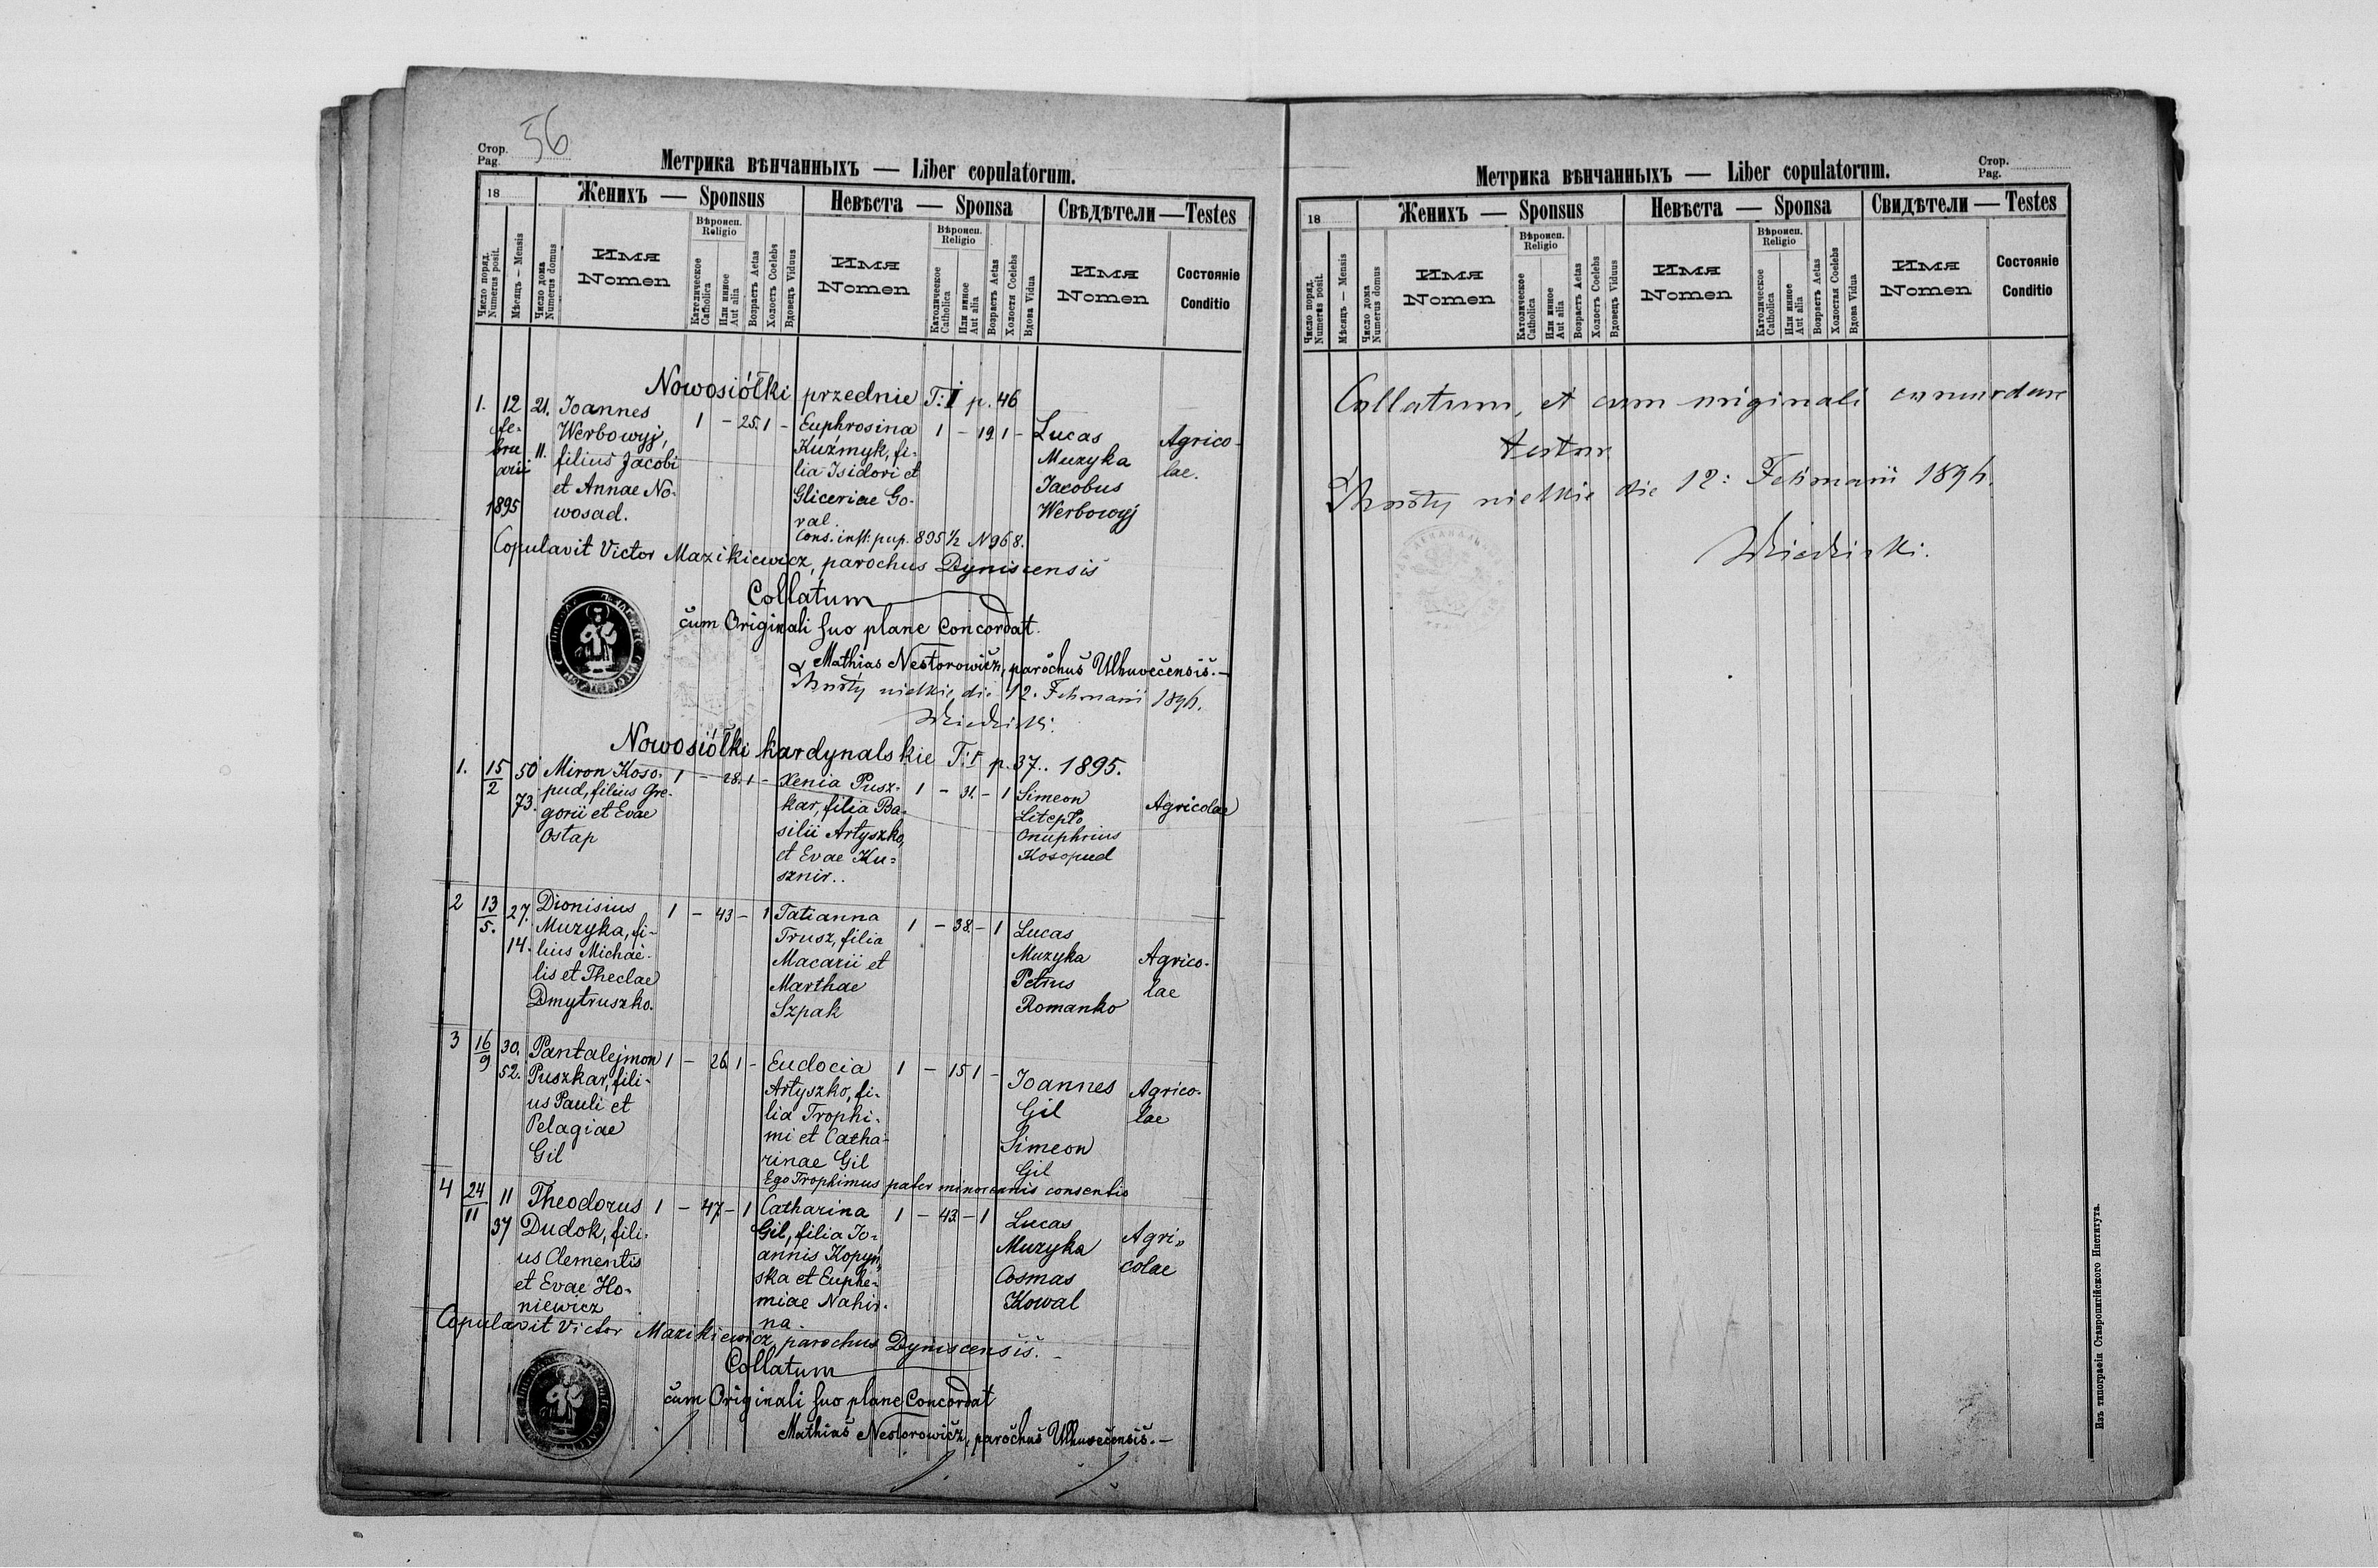 Стор.
Pag. 56
Метрика вѣнчанныхъ — Liber copulatorum.
18
Женихъ — Sponsus
Невѣста — Sponsa
Свѣдѣтели — Testes
Число поряд.
Numerus posit.
Мѣсяцъ — Mensis
Число дома
Numerus domus
Имя
Nomen
Вѣроисп.
Religio
Католическое
Catholica
Или инное
Aut alia
Возрастъ Aetas
Холостъ Coelebs
Вдовецъ Viduus
Имя
Nomen
Вѣроисп.
Religio
Католическое
Catholica
Или инное
Aut alia
Возрастъ Aetas
Холостя Coelebs
Вдова Vidua
Имя
Nomen
Состояніе
Conditio
Nowosiółki przednie T: I p. 46
1. 12 fe-
bru
arii
1895
21.
11.
Joannes
Werbowyj,
filius Jacobi
et Annae No-
wosad.
1 - 25. 1 -
Euphrosina
Kuźmyk, fi-
lia Isidori et
Gliceriae Go-
val.
Cons. inst: pup. 895 1/2 N 968.
1 - 19 1 -
Lucas
Muzyka
Jacobus
Werbowyj
Agrico-
lae.
Copulavit Victor Mazikiewicz, parochus Dyniscensis
Collatum
cum Originali suo plane concordat.
Mathias Nestorowicz, parochus Uhnovecensis. —
die 12. Februarii 1896.
Nowosiółki kardynalskie T: I p. 37.. 1895.
1. 15
2
50
73.
Miron Koso-
pud, filius Gre-
gorii et Evae
Ostap
1 - 28. 1 -
Xenia Pusz-
kar, filia Ba-
silii Artyszko,
et Evae Ku=
sznir..
1 - 31. - 1
Simeon
Litepło
Onuphrius
Kosopud
Agricolae
2 13
5.
27.
14.
Dionisius
Muzyka, fi-
lius Michaë-
lis et Theclae
Dmytruszko.
1 - 43 - 1
Tatianna
Trusz, filia
Macarii et
Marthae
Szpak
1 - 38. - 1
Lucas
Muzyka
Petrus
Romanko
Agrico-
lae
3 16
9
30.
52.
Pantalejmon
Puszkar, fili-
us Pauli et
Pelagiae
Gil
1 - 26 1 -
Eudocia
Artyszko, fi-
lia Trophi-
mi et Catha-
rinae Gil
Ego Trophimus pater minorennis consentio
1 - 15 1 -
Joannes
Gil
Simeon
Gil
Agrico-
lae
4 24
11
11
37
Theodorus
Dudok, fili-
us Clementis
et Evae Ho-
niewicz
1 - 47 - 1
Catharina
Gil, filia Jo-
annis Kopyń,
ska et Euphe-
miae Nahir-
na.
1 - 43 - 1
Lucas
Muzyka
Cosmas
Kowal
Agri„
colae
Copulavit Victor Mazikiewicz, parochus Dyniscensis. —
Collatum
cum Originali suo plane Concordat
Mathias Nestorowicz, parochus Uhnovecensis. —
Метрика вѣнчанныхъ — Liber copulatorum.
Стор.
Pag.
18
Женихъ — Sponsus
Невѣста — Sponsa
Свидѣтели — Testes
Число поряд.
Numerus posit.
Мѣсяцъ — Mensis
Число дома
Numerus domus
Имя
Nomen
Вѣроисп.
Religio
Католическое
Catholica
Или инное
Aut alia
Возрастъ Aetas
Холостъ Coelebs
Вдовецъ Viduus
Имя
Nomen
Вѣроисп.
Religio
Католическое
Catholica
Или инное
Aut alia
Возрастъ Aetas
Холостая Coelebs
Вдова Vidua
Имя
Nomen
Состояніе
Conditio
Collatum, et cum originali concordare
testor
die 12: Februarii 1896.
Изъ типографіи Ставропигійского Института.